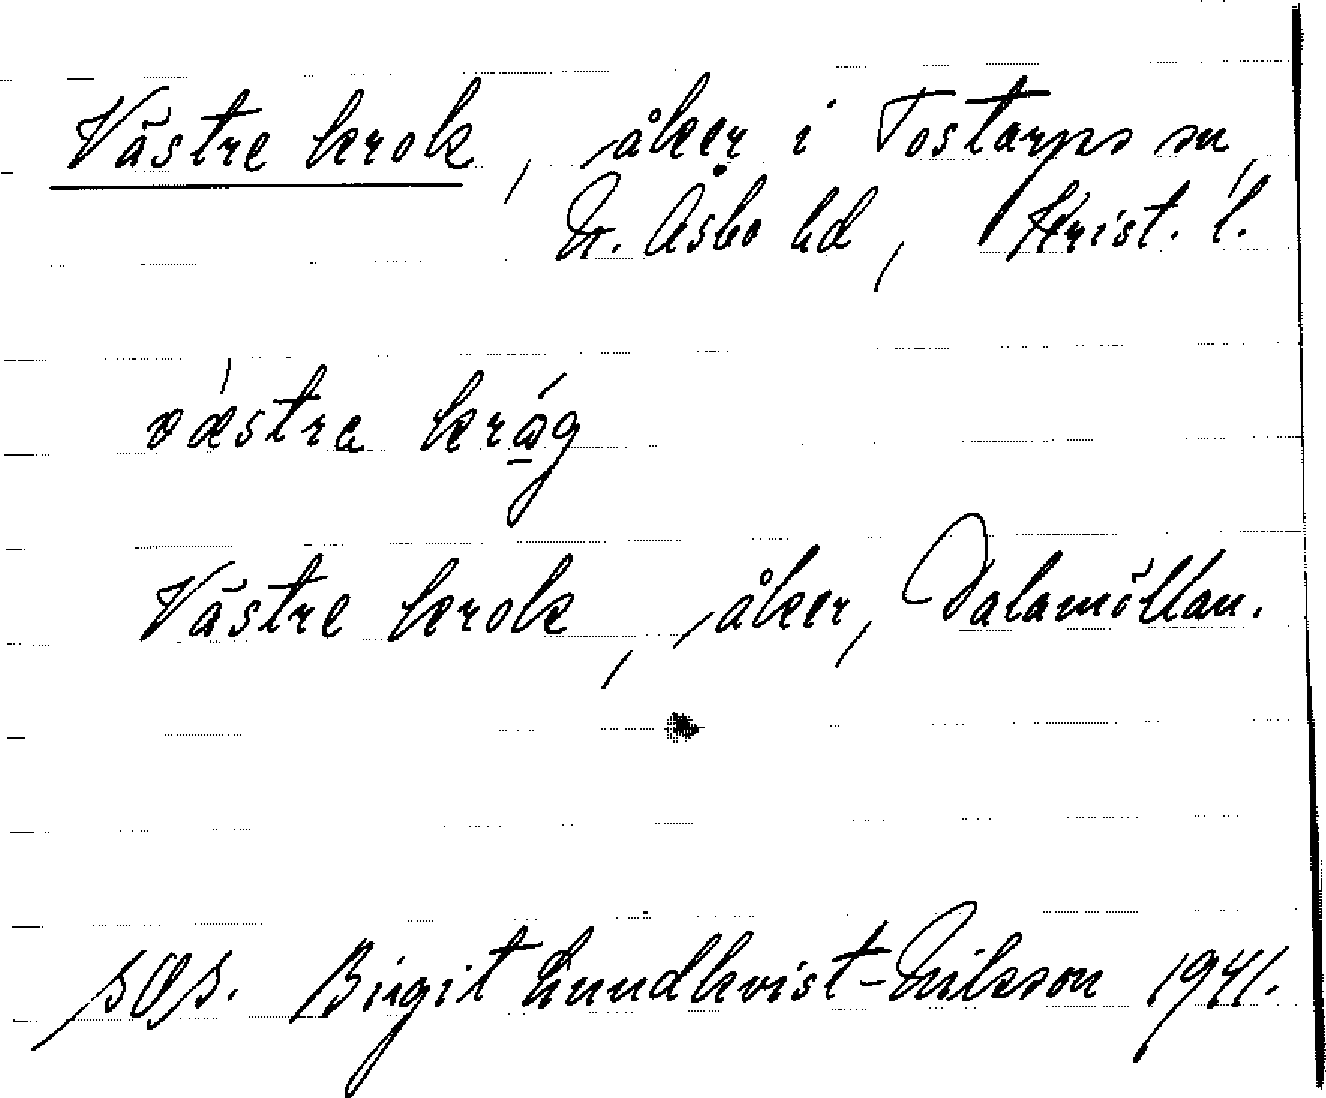 Västre krok, åker i Tostarps sn,
N. Åsbo hd, Krist. l.
væstra kråg
Västre krok, åker, Dalamöllan.
Birgit Lundkvist-Nilsson 1941.